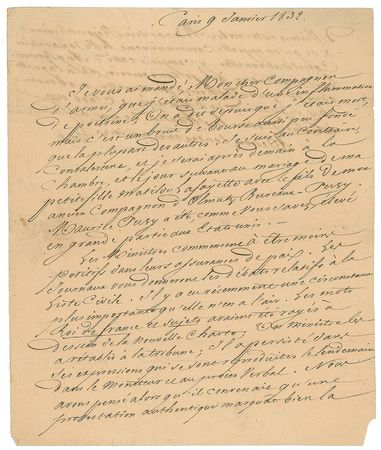 Paris 9 Janvier 1832.
Je vous ai mandé, Mon cher Compagnon
d'armes, que j'étais malade d'une inflammation
de poitrine; On a dit depuis que j'étais mort,
mais c'est un bruit de bourse aussi peu fondé
que la plupart des autres. Je suis au Contraire
Convalescent et je serai après demain à la
Chambre, et le jour suivant au mariage de ma
petite fille Matilde Lafayette avec le fils de mon
ancien Compagnon d'Olmutz Bureaux-Puzy
Maurice Puzy a été, comme vous savez, élevé
en grande partie aux Etats unis. —
Les Ministres commencent à être moins
positifs dans leurs assurances de paix. Les
Journaux vous donneront les débats relatifs à la
Liste Civile. Il y a eu récemment une circonstance
plus importante qu'elle n'en a l'air. Les mots
Roi de france et sujets avaient été rayés à
dessein de la Nouvelle Charte; Un Ministre les
a rétablis à la tribune; Il a persisté dans
ses expressions qui se sont reproduites le lendemain
dans le Moniteur et au procès Verbal. Nous
avons pensé alors qu'il convenait qu'une
protestation authentique marquât bien la